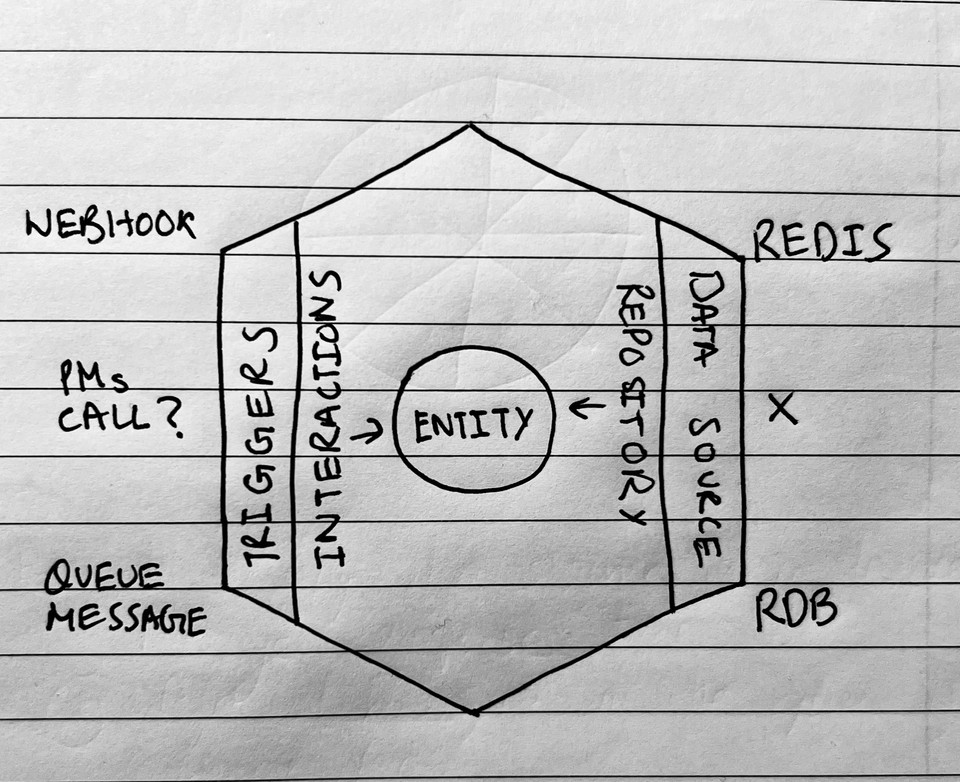 WEBHOOK
PMs
CALL?
QUEUE
MESSAGE
TRIGGERS
INTERACTIONS
ENTITY
REPOSITORY
DATA SOURCE
REDIS
X
RDB